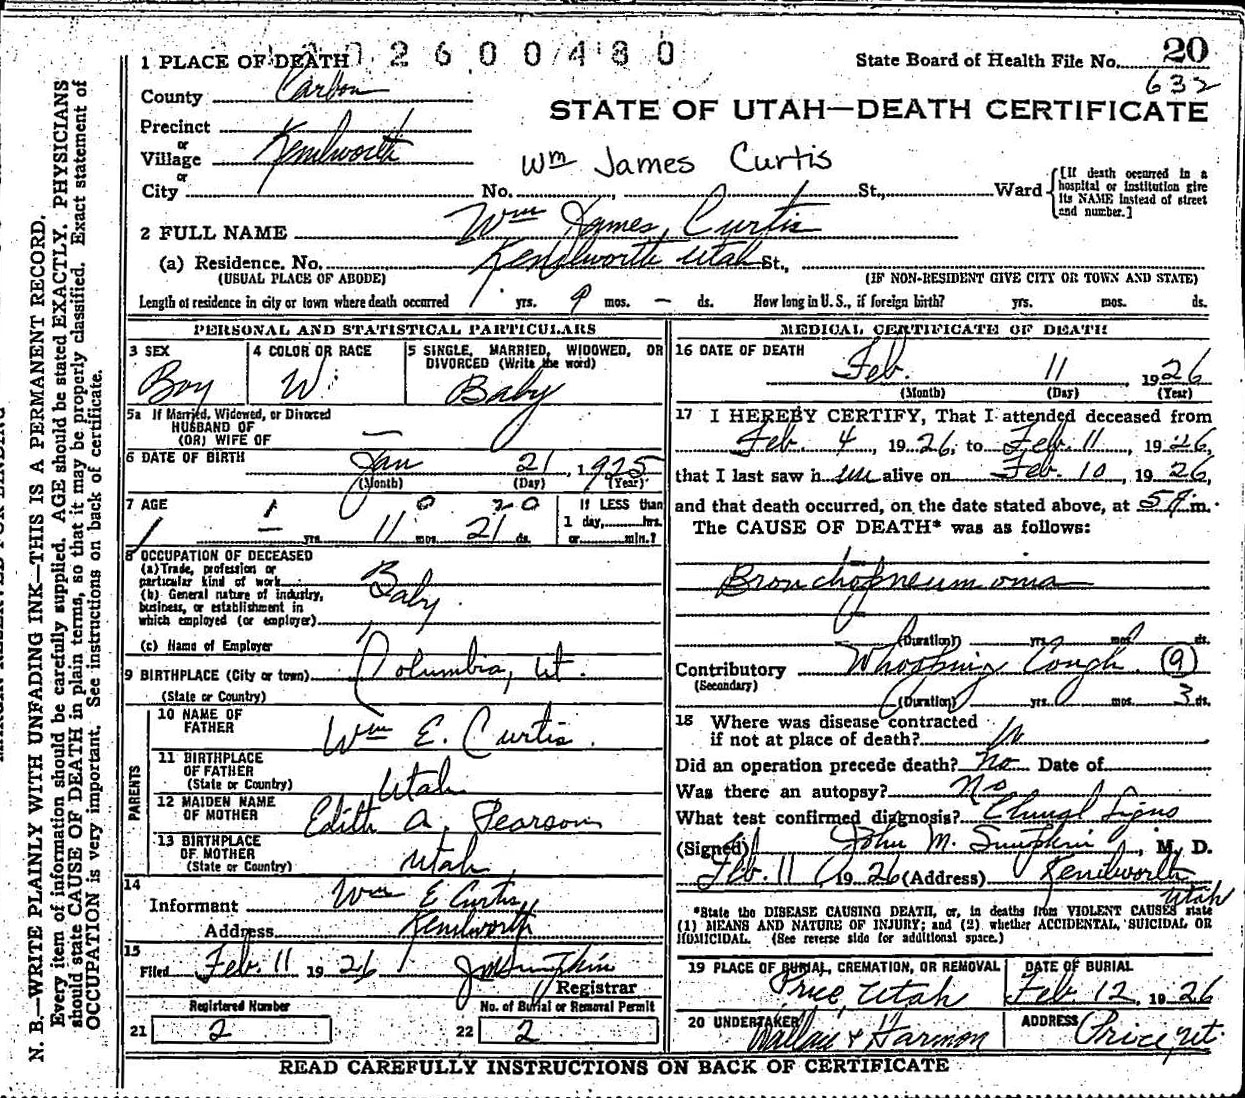 2600480
1 PLACE OF DEATH
State Board of Health File No. 20
632
County Carbon
STATE OF UTAH—DEATH CERTIFICATE
Precinct
or
Village Kenilworth
or
Wm James Curtis
City No. St., Ward
[If death occurred in a
hospital or institution give
its NAME instead of street
and number.]
2 FULL NAME Wm James Curtis
(a) Residence. No. Kenilworth Utah St.,
(USUAL PLACE OF ABODE) (IF NON-RESIDENT GIVE CITY OR TOWN AND STATE)
Length of residence in city or town where death occurred 1 yrs. 9 mos. — ds. How long in U. S., if foreign birth? yrs. mos. ds.
PERSONAL AND STATISTICAL PARTICULARS
3 SEX 4 COLOR OR RACE 5 SINGLE, MARRIED, WIDOWED, OR
DIVORCED (Write the word)
Boy W. Baby
5a If Married, Widowed, or Divorced
HUSBAND OF
(OR) WIFE OF —
6 DATE OF BIRTH Jan 21, 1925
(Month) (Day) (Year)
7 AGE 1 0 20 If LESS than
1 — yrs. 11 mos. 21 ds. 1 day, hrs.
or min.?
8 OCCUPATION OF DECEASED
(a) Trade, profession or
particular kind of work Baby
(b) General nature of industry,
business, or establishment in
which employed (or employer)
(c) Name of Employer
9 BIRTHPLACE (City or town) Columbia, Ut.
(State or Country)
PARENTS
10 NAME OF
FATHER Wm E. Curtis.
11 BIRTHPLACE
OF FATHER
(State or Country) Utah
12 MAIDEN NAME
OF MOTHER Edith A. Pearson
13 BIRTHPLACE
OF MOTHER
(State or Country) Utah
14
Informant Wm E Curtis
Address Kenilworth
15
Filed Feb. 11 1926 J M Simpkin
Registrar
Registered Number No. of Burial or Removal Permit
21 2 22 2
MEDICAL CERTIFICATE OF DEATH
16 DATE OF DEATH
Feb. 11, 1926
(Month) (Day) (Year)
17 I HEREBY CERTIFY, That I attended deceased from
Feb. 4, 1926, to Feb. 11, 1926,
that I last saw him alive on Feb. 10, 1926,
and that death occurred, on the date stated above, at 5 A. m.
The CAUSE OF DEATH* was as follows:
Bronchopneumonia
(Duration) yrs. mos. ds.
Contributory Whooping Cough (9)
(Secondary)
(Duration) yrs. mos. 3 ds.
18 Where was disease contracted
if not at place of death?
Did an operation precede death? No Date of
Was there an autopsy? No
What test confirmed diagnosis? Signs
(Signed) John M. Simpkin, M. D.
Feb. 11 1926 (Address) Kenilworth
Utah
*State the DISEASE CAUSING DEATH, or, in deaths from VIOLENT CAUSES state
(1) MEANS AND NATURE OF INJURY; and (2) whether ACCIDENTAL, SUICIDAL OR
HOMICIDAL. (See reverse side for additional space.)
19 PLACE OF BURIAL, CREMATION, OR REMOVAL DATE OF BURIAL
Price, Utah Feb. 12, 1926
20 UNDERTAKER ADDRESS
Wallace & Harmon Price, Ut.
READ CAREFULLY INSTRUCTIONS ON BACK OF CERTIFICATE
N. B.—WRITE PLAINLY WITH UNFADING INK—THIS IS A PERMANENT RECORD.
Every item of information should be carefully supplied. AGE should be stated EXACTLY. PHYSICIANS
should state CAUSE OF DEATH in plain terms, so that it may be properly classified. Exact statement of
OCCUPATION is very important. See instructions on back of certificate.